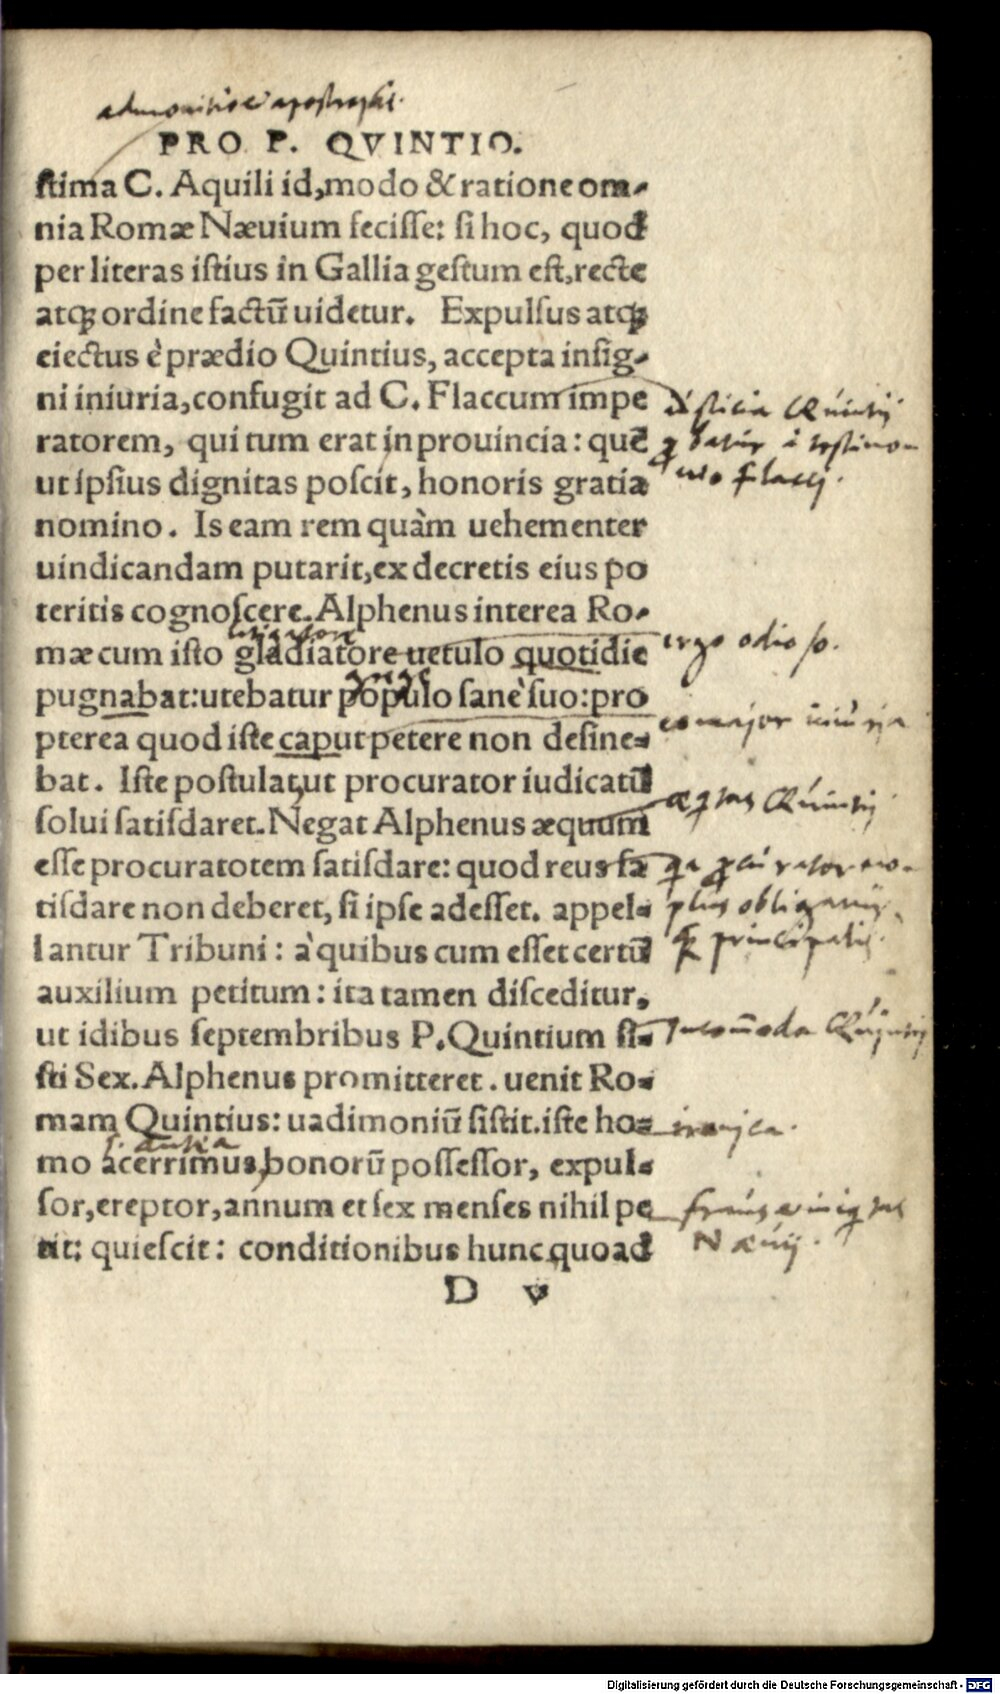 PRO P. QVINTIO.
stima C. Aquili id, modo & ratione om-
nia Romæ Næuium fecisse: si hoc, quod
per literas istius in Gallia gestum est, recte
atqꝫ ordine factū uidetur. Expulsus atqꝫ
eiectus è prædio Quintius, accepta insig-
ni iniuria, confugit ad C. Flaccum impe
ratorem, qui tum erat in prouincia: quē
ut ipsius dignitas poscit, honoris gratia
nomino. Is eam rem quàm uehementer
uindicandam putarit, ex decretis eius po
teritis cognoscere. Alphenus interea Ro-
mæ cum isto gladiatore uetulo quotidie
pugnabat: utebatur populo sanè suo: pro
pterea quod iste caput petere non desine-
bat. Iste postulat, ut procurator iudicatū
solui satisdaret. Negat Alphenus æquum
esse procuratotem satisdare: quod reus sa
tisdare non deberet, si ipse adesset. appel-
lantur Tribuni: à quibus cum esset certū
auxilium petitum: ita tamen disceditur,
ut idibus septembribus P. Quintium si-
sti Sex. Alphenus promitteret. uenit Ro-
mam Quintius: uadimoniū sistit. iste ho-
mo acerrimus, bonorū possessor, expul-
sor, ereptor, annum et sex menses nihil pe
tit: quiescit: conditionibus hunc, quoad
D v
Quintij
testimo-
nio Flacci.
ergo odio
major iniuria
Quintij
procurator no-
plus
principalis.
Incom̄oda Quintij
Næuij.
Digitalisierung gefördert durch die Deutsche Forschungsgemeinschaft - DFG